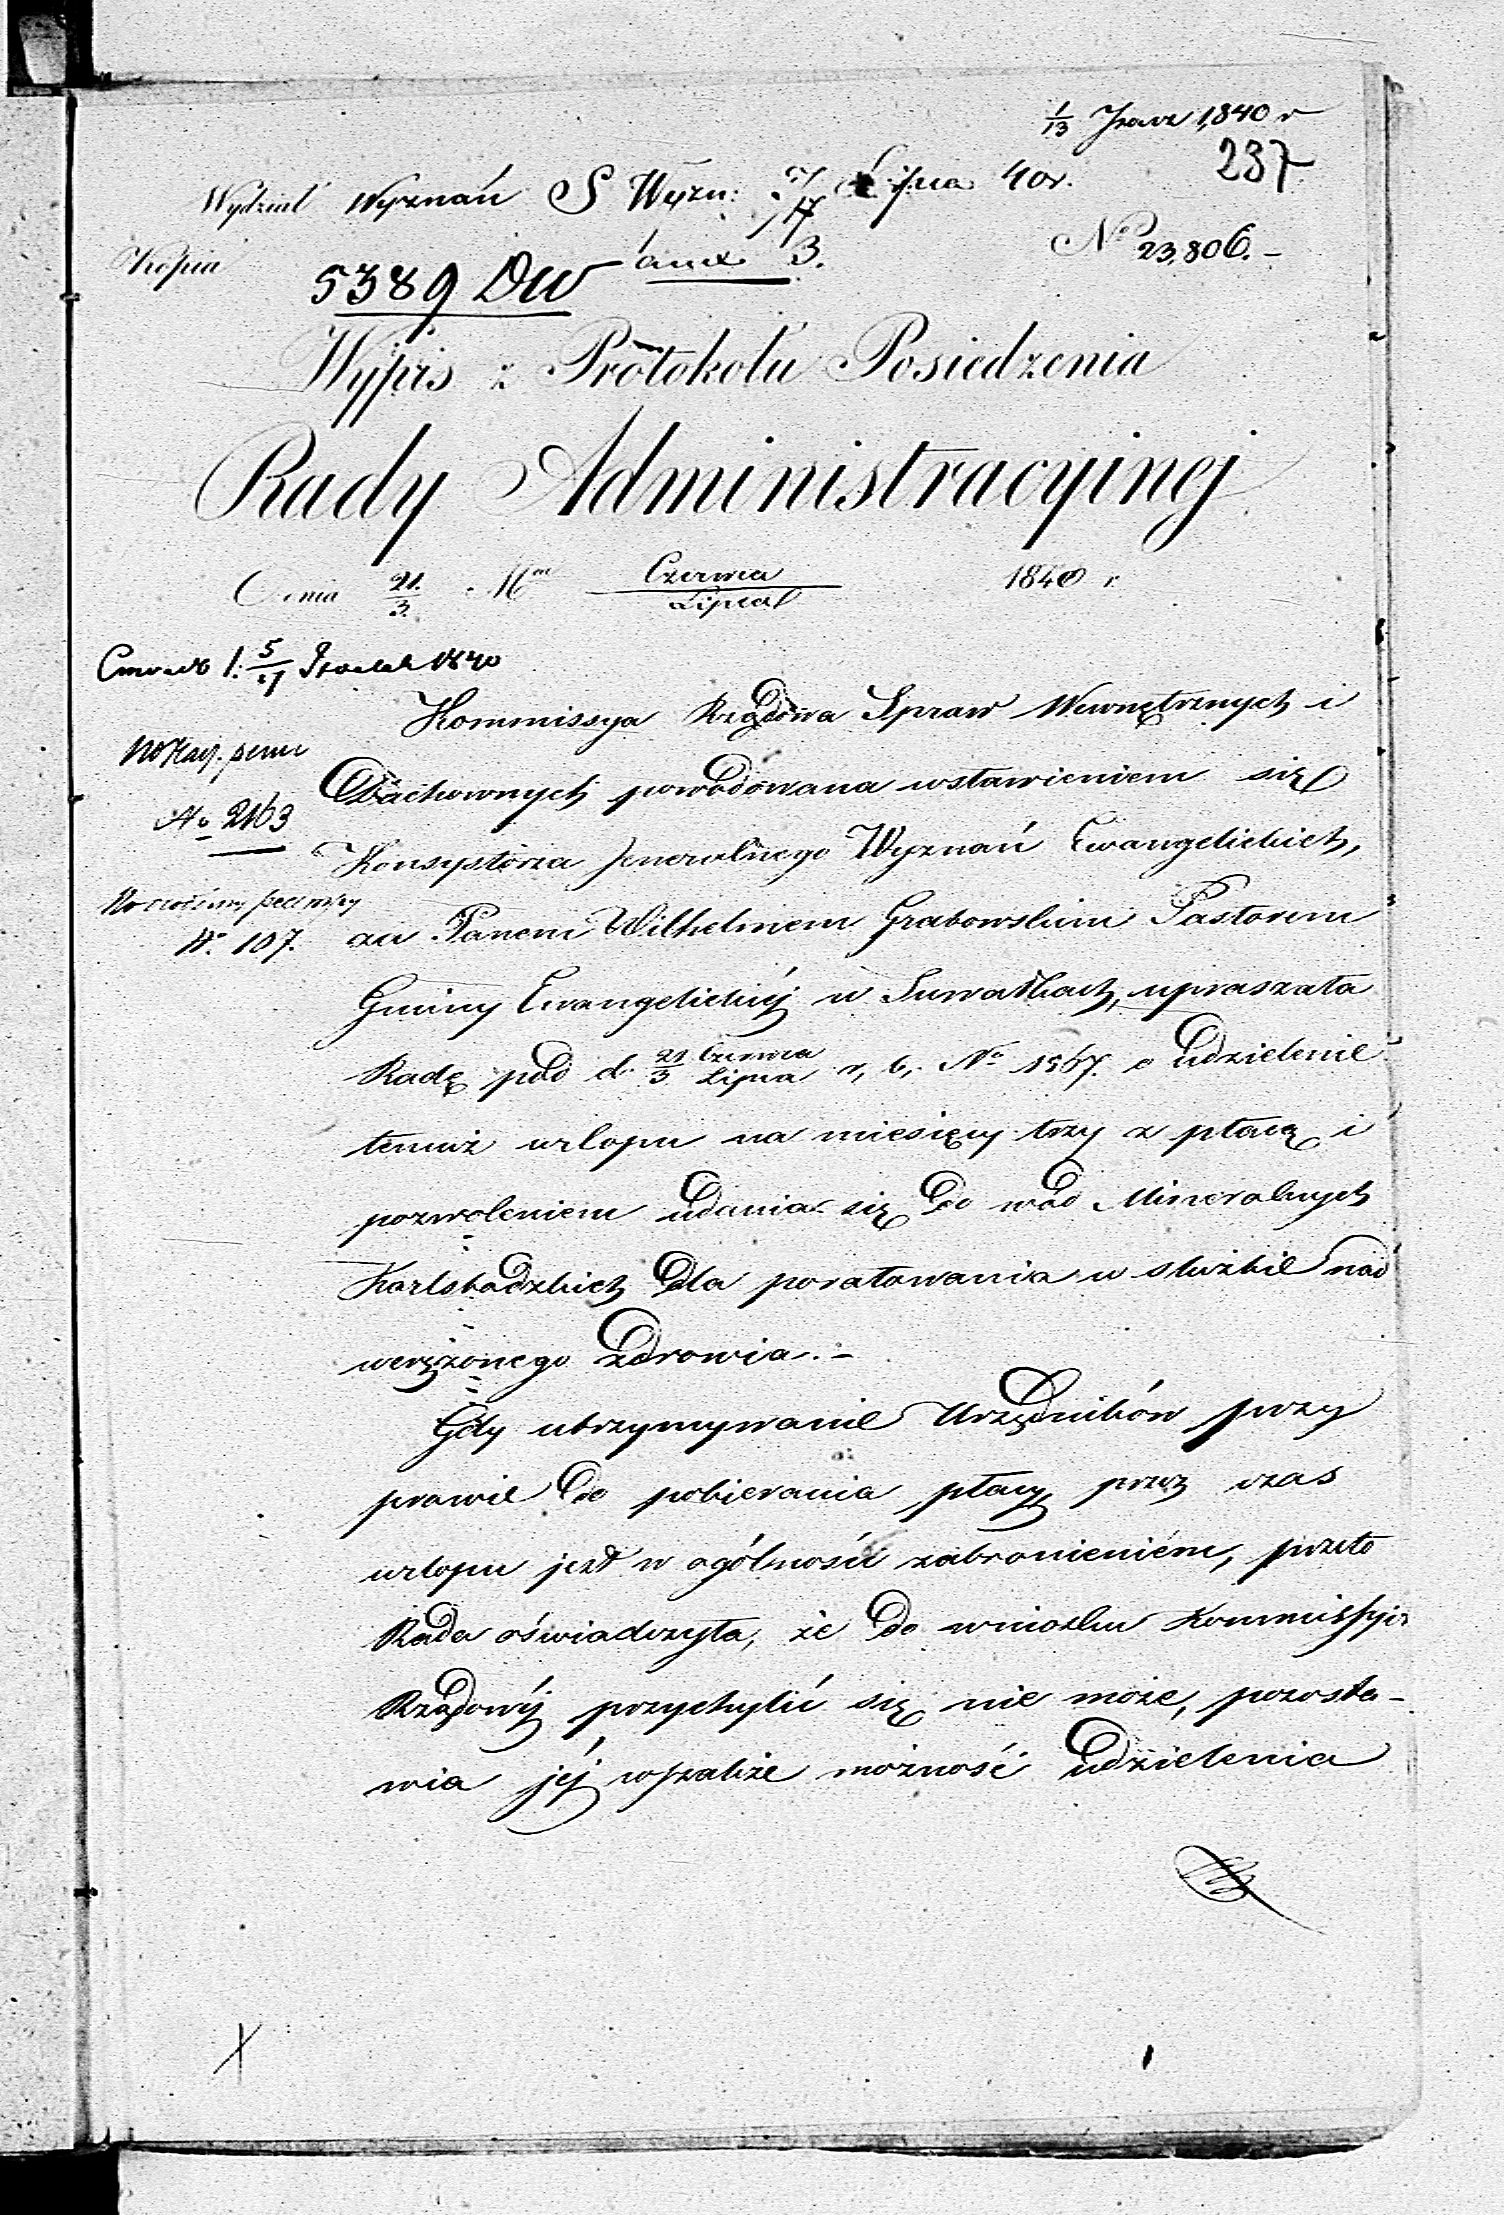 1/13 1840 r
237
Wydział Wyznań S Wyzn: /17 Lipca 40 r.
Kopia
5389 DW
anex 3.
No 23,806.-
Wypis z Protokółu Posiedzenia
Rady Administracyinej
Dnia 21./3. Mca Czerwca/Lipca 1840 r
1840
No 2163
No 107.
Kommissya Rządowa Spraw Wewnętrznych i
Duchownych powodowana wstawieniem się
Konsystorza Jeneralnego Wyznań Ewangelickich,
za Panem Wilhelmem Grabowskim Pastorem
Gminy Ewangelickiéj w Suwałkach, upraszała
Radę pod d. 21/3 Czerwca/Lipca r. b. No 1567. o udzielenie
temuż urlopu na miesięcy trzy z płacą i
pozwoleniem udania się do wód Mineralnych
Karlsbadzkich dla poratowania w służbie nad
werężonego zdrowia.-
Gdy utrzymywanie Urzędników przy
prawie do pobierania płacy przez czas
urlopu jest w ogólności zabronieniém, przeto
Rada oświadczyła, że do wniosku Kommissyi
Rządowéj przychylić się nie może, pozosta-
wia jéj wszakże możność udzielenia